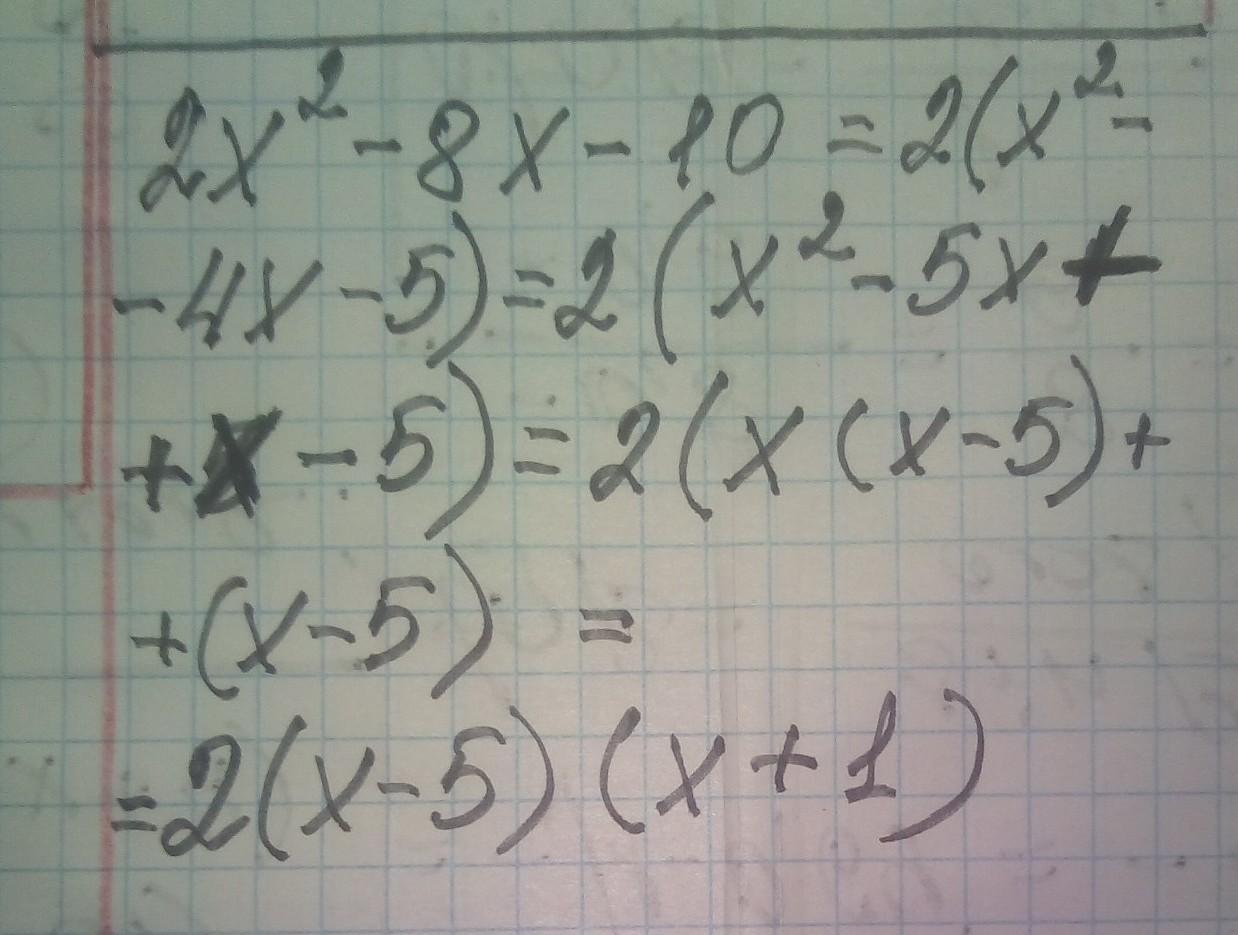 2x² - 8x - 10 = 2(x² -
- 4x - 5) = 2(x² - 5x +
+ x - 5) = 2(x(x - 5) +
+ (x - 5) =
= 2(x - 5)(x + 1)